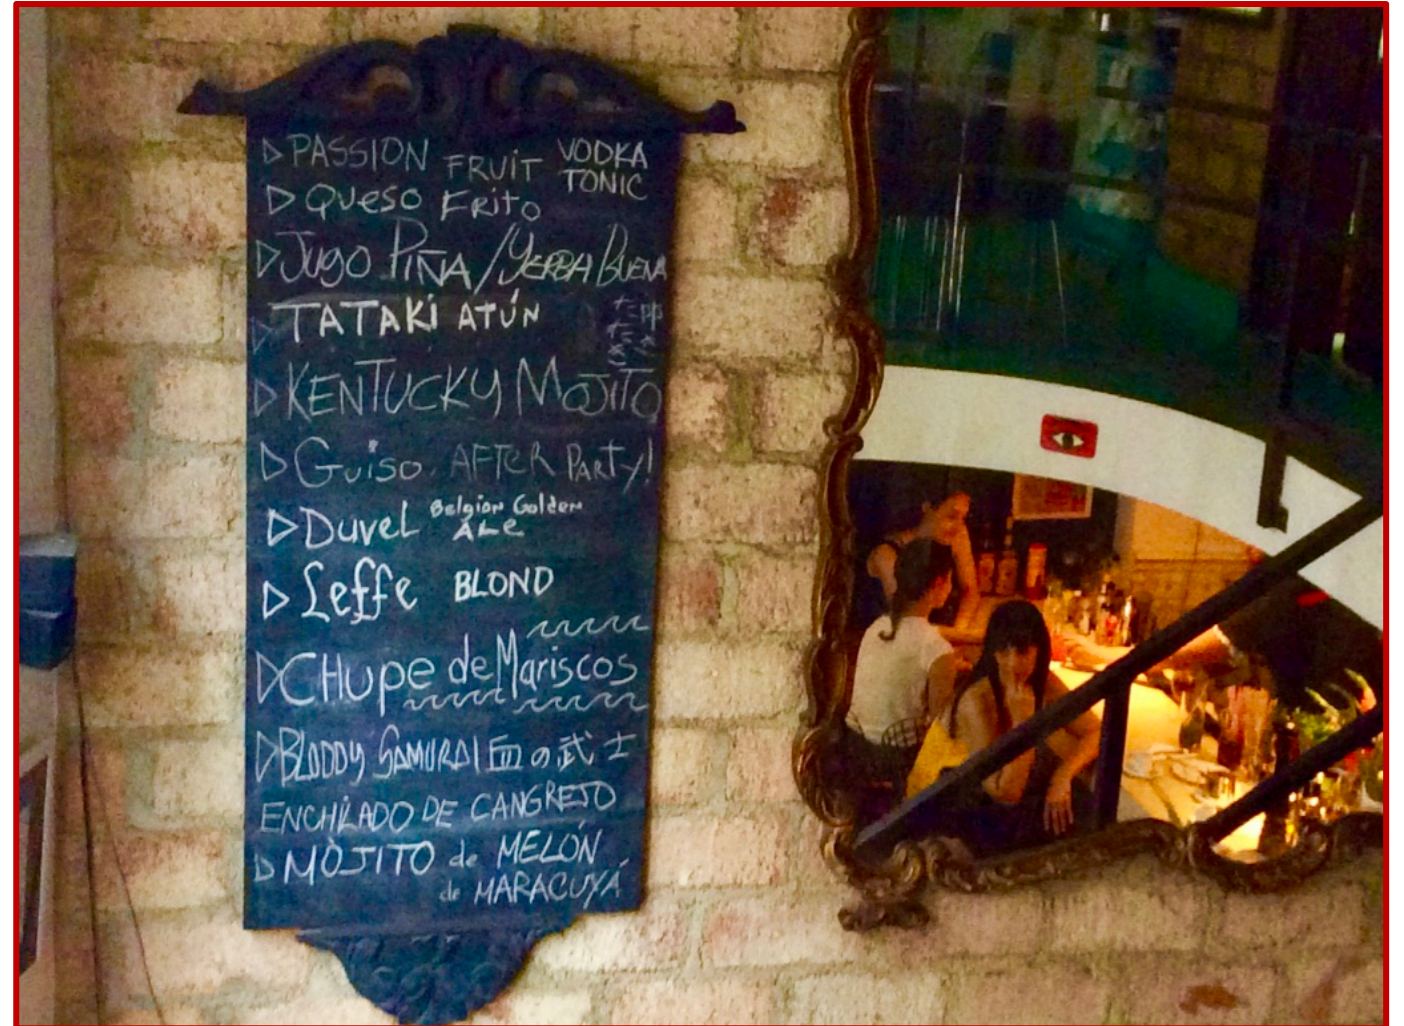 ▷ PASSION FRUIT VODKA TONIC
▷ Queso Frito
▷ Jugo PIÑA / YERBA BUENA
▷ TATAKI ATÚN
▷ KENTUCKY MOJITO
▷ Guiso AFTER PARTY!
▷ Duvel Belgian Golden ALe
▷ Leffe BLOND
▷ CHupe de Mariscos
▷ BLOODY SAMURAI 血の武士
ENCHILADO DE CANGREJO
▷ MOJITO de MELÓN
de MARACUYÁ